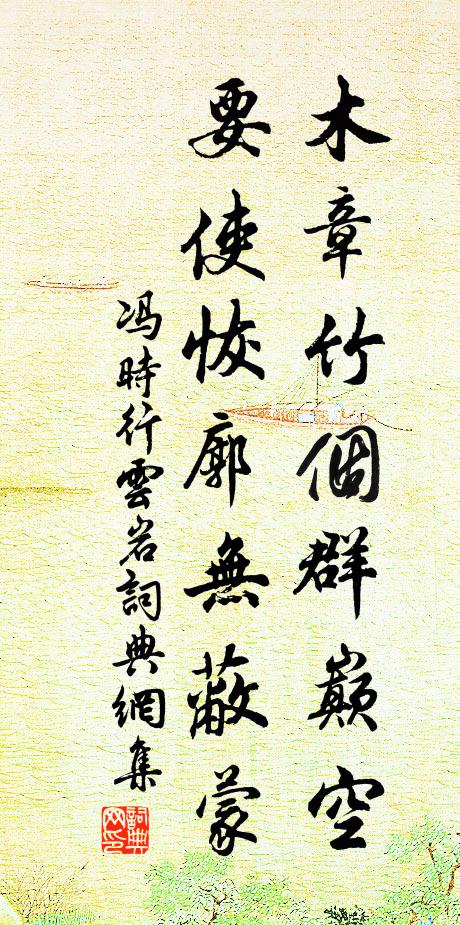 木章竹個群巔空
要使恢廓無蔽蒙
冯時行雲岩詞典網集
詞典网印